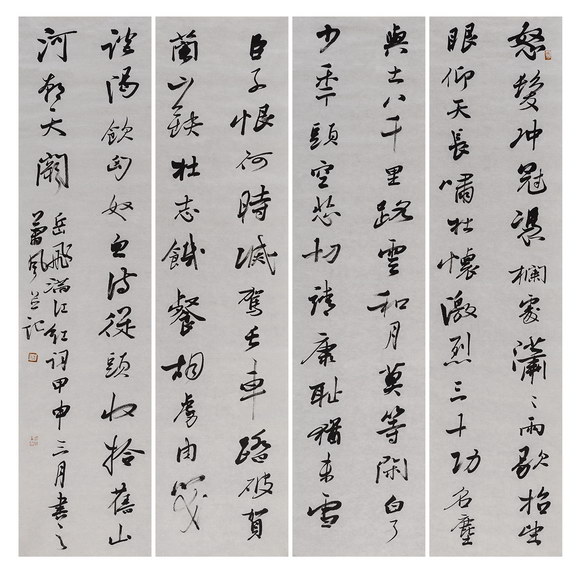 怒髮冲冠憑欄處瀟〻雨歇抬望
眼仰天長嘯壯懷激烈三十功名塵
與土八千里路雲和月莫等閑白了
少年頭空悲切靖康恥猶未雪
臣子恨何時滅駕長車踏破賀
蘭山缺壯志饑餐胡虜肉笑
談渴飲匈奴血待從頭收拾舊山
河朝天闕
岳飛滿江紅詞甲申三月書之
蕭風并記